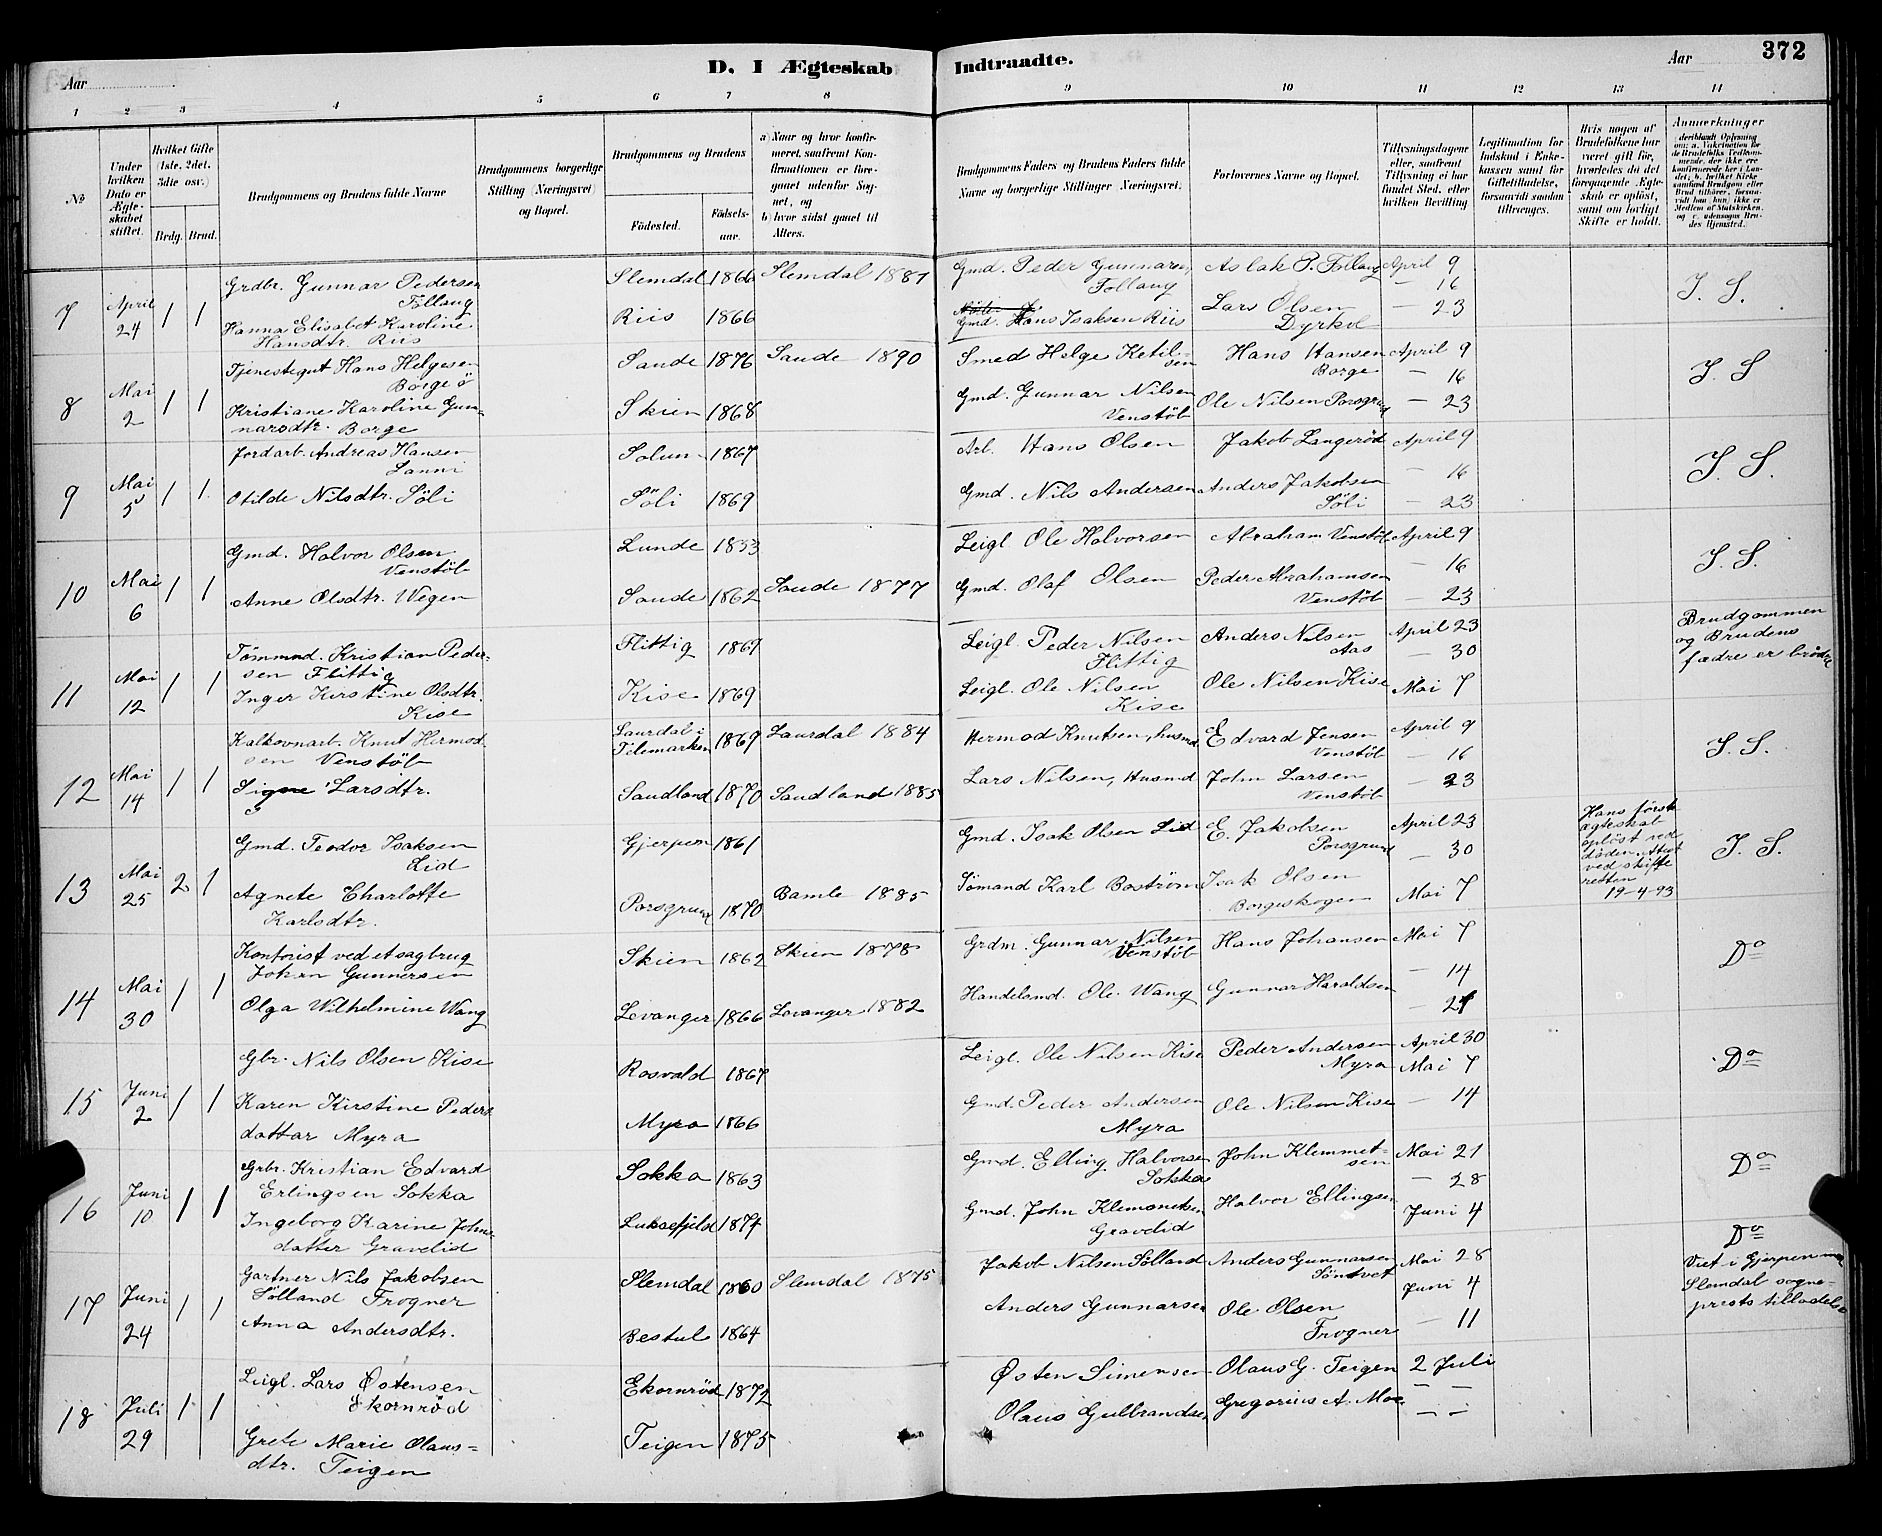 372
D. I Ægteskab Indtraadte.
Aar
Aar
1 2 3 4 5 6 7 8 9 10 11 12 13 14
No
Under hvilken Dato er Ægteskabet stiftet.
Hvilket Gifte (1ste, 2det, 3die osv.)
Brdg. Brud.
Brudgommens og Brudens fulde Navne
Brudgommens borgerlige Stilling (Næringsvei) og Bopæl.
Brudgommens og Brudens
Fødested. Fødsels-aar.
a) Naar og hvor konfirmeret, saafremt Konfirmationen er foregaaet udenfor Sognet, og
b) hvor sidst gaaet til Alters.
Brudgommens Faders og Brudens Faders fulde Navne og borgerlige Stillinger (Næringsvei).
Forlovernes Navne og Bopæl.
Tillysningsdagene eller, saafremt Tillysning ei har fundet Sted, efter hvilken Bevilling
Legitimation for Indskud i Enkekassen samt for Giftetilladelse, forsaavidt saadan tiltrænges.
Hvis nogen af Brudefolkene har været gift før, hvorledes da det foregaaende Ægteskab er opløst, samt om lovligt Skifte er holdt.
Anmærkninger
7 April 24 1 1
Grdbr. Gunnar Pedersen
Follaug
Slemdal 1866 Slemdal 1881
Gmd. Peder Gunnarsen
Follaug
Aslak P. Follaug
April 9
— 16
— 23
J. S.
Hanna Elisabet Karoline
Hansdtr. Riis
Riis 1866
Gmd. Hans Isaksen Riis
Lars Olsen
Dyrkol
8 Mai 2 1 1
Tjenestegut Hans Helgesen
Borge ö
Saude 1876 Saude 1890
Smed Helge Ketilsen
Hans Hansen
Borge
April 9
— 16
— 23
J. S
Kristiane Karoline Gunnarsdtr. Borge
Skien 1868
Gmd. Gunnar Nilsen
Venstöb
Ole Nilsen Porsgrund
9 Mai 5 1 1
Jordarb. Andreas Hansen
Lanni
Solum 1867
Arb. Hans Olsen
Jakob Langeröd
April 9
— 16
— 23
J. S.
Otilde Nilsdtr. Söli
Söli 1869
Gmd. Nils Andersen
Anders Jakobsen
Söli
10 Mai 6 1 1
Gmd. Halvor Olsen
Venstöb
Lunde 1833
Leigl. Ole Halvorsen
Abraham Venstöb
April 9
— 16
— 23
J. S.
Anne Olsdtr. Wegen
Saude 1862 Saude 1877
Gmd. Olaf Olsen
Peder Abrahamsen
Venstöb
11 Mai 12 1 1
Tömmmd. Kristian Pedersen Flittig
Flittig 1869
Leigl. Peder Nilsen
Flittig
Anders Nilsen
Aas
April 23
— 30
Mai 7
Brudgommen
og Brudens
fædre er brødre
Inger Kirstine Olsdtr.
Kise
Kise 1869
Leigl. Ole Nilsen
Kise
Ole Nilsen Kise
12 Mai 14 1 1
Kalkovnarb. Knut Hermodsen Venstöb
Laurdal i
Tilemarken 1869 Laurdal 1884
Hermod Knutsen, husmd
Edvard Jensen
Venstöb
April 9
— 16
— 23
J. S.
Signe Larsdtr.
Saudland 1870 Saudland 1885
Lars Nilsen, Husmd
John Larsen
Venstöb
13 Mai 25 2 1
Gmd. Teodor Isaksen
Lid
Gjerpen 1861
Gmd. Isak Olsen Lid
E. Jakobsen
Porsgrund
April 23
— 30
Mai 7
Hans første
ægteskab
opløst ved
døden. Attest
ved skifte
retten
19-4-93
J. S.
Agnete Charlotte
Karlsdtr.
Porsgrund 1870 Bamle 1885
Sömand Karl Boström
Isak Olsen
Borgeskogen
14 Mai 30 1 1
Kontorist ved et sagbrug
Johan Gunnersen
Skien 1862 Skien 1878
Grdm. Gunnar Nilsen
Venstöb
Hans Johansen
Mai 7
— 14
— 21
Do
Olga Wilhelmine Wang
Levanger 1866 Levanger 1882
Handelsmd. Ole Wang
Gunnar Haraldsen
15 Juni 2 1 1
Gbr. Nils Olsen Kise
Rosvald 1867
Leigl. Ole Nilsen Kise
Peder Andersen
Myra
April 30
Mai 7
— 14
Do
Karen Kirstine Pedersdatter Myra
Myra 1866
Gmd. Peder Andersen
Myra
Ole Nilsen Kise
16 Juni 10 1 1
Grbr. Kristian Edvard
Erlingsen Sokka
Sokka 1863
Gmd. Elling Halvorsen
Sokka
John Klemmetsen
Mai 21
— 28
Juni 4
Do
Ingeborg Karine Johnsdatter Gravelid
Luksefjeld 1874
Gmd. John Klemmetsen
Gravelid
Halvor Ellingsen
17 Juni 24 1 1
Gartner Nils Jakobsen
Sölland Frogner
Slemdal 1860 Slemdal 1875
Jakob Nilsen Sölland
Anders Gunnarsen
Söntvet
Mai 28
Juni 4
— 11
Do
Viet i Gjerpen med
Slemdal sogneprests tilladelse
Anna Andersdtr.
Bestul 1864
Anders Gunnarsen
Ole Olsen
Frogner
18 Juli 29 1 1
Leigl. Lars Östensen
Ekornröd
Ekornröd 1872
Østen Simensen
Olaus G. Teigen
2 Juli
— —
Grete Marie Olausdtr. Teigen
Teigen 1875
Olaus Gulbrandsen
Gregorius A. Moe
— —